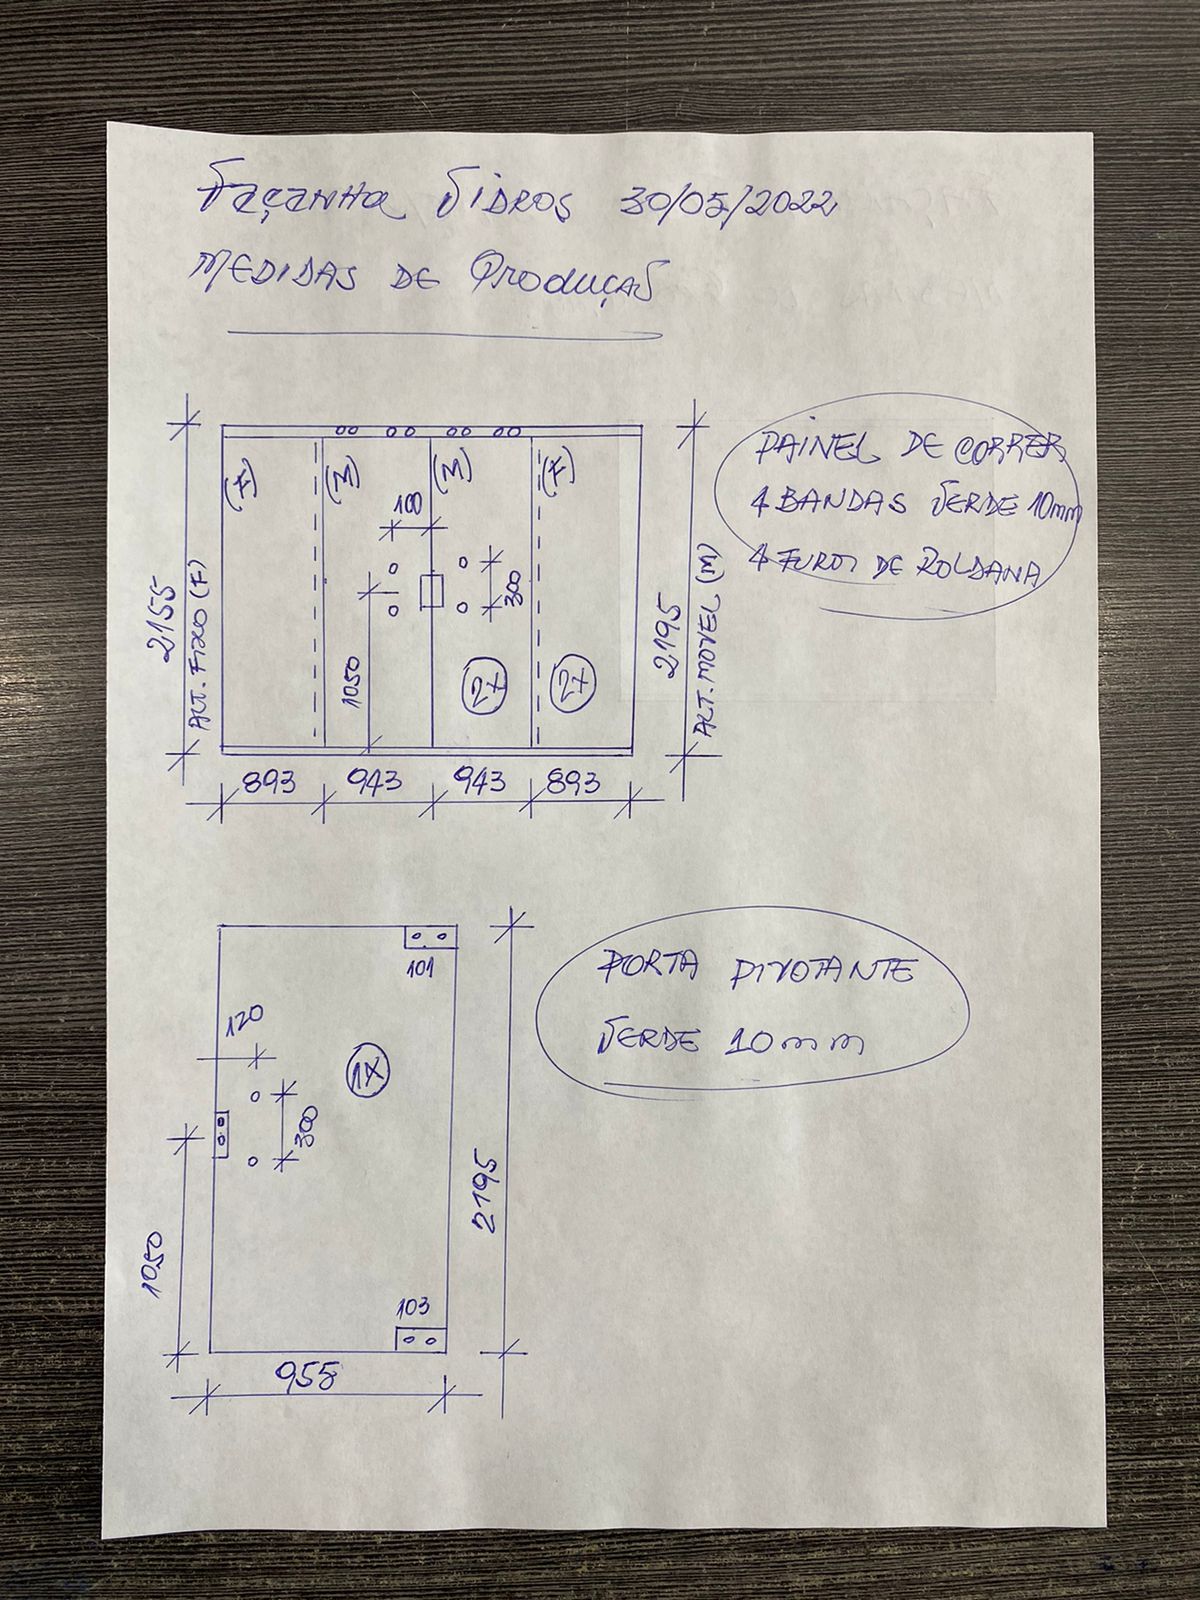 Façanha Vidros 30/05/2022
MEDIDAS DE PRODUÇÃO
PAINEL DE CORRER
4 BANDAS VERDE 10mm
4 FUROS DE ROLDANA
(F)
(M)
(M)
(F)
100
300
1050
2X
2X
2155
ALT. FIXO (F)
2195
ALT. MOVEL (M)
893
943
943
893
101
PORTA PIVOTANTE
VERDE 10mm
120
1X
300
1050
2195
103
958